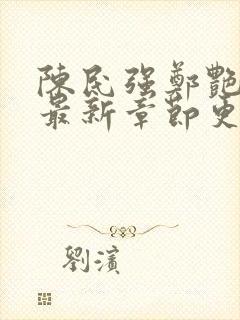 陳民强鄭艷
最新章節更
劉濱